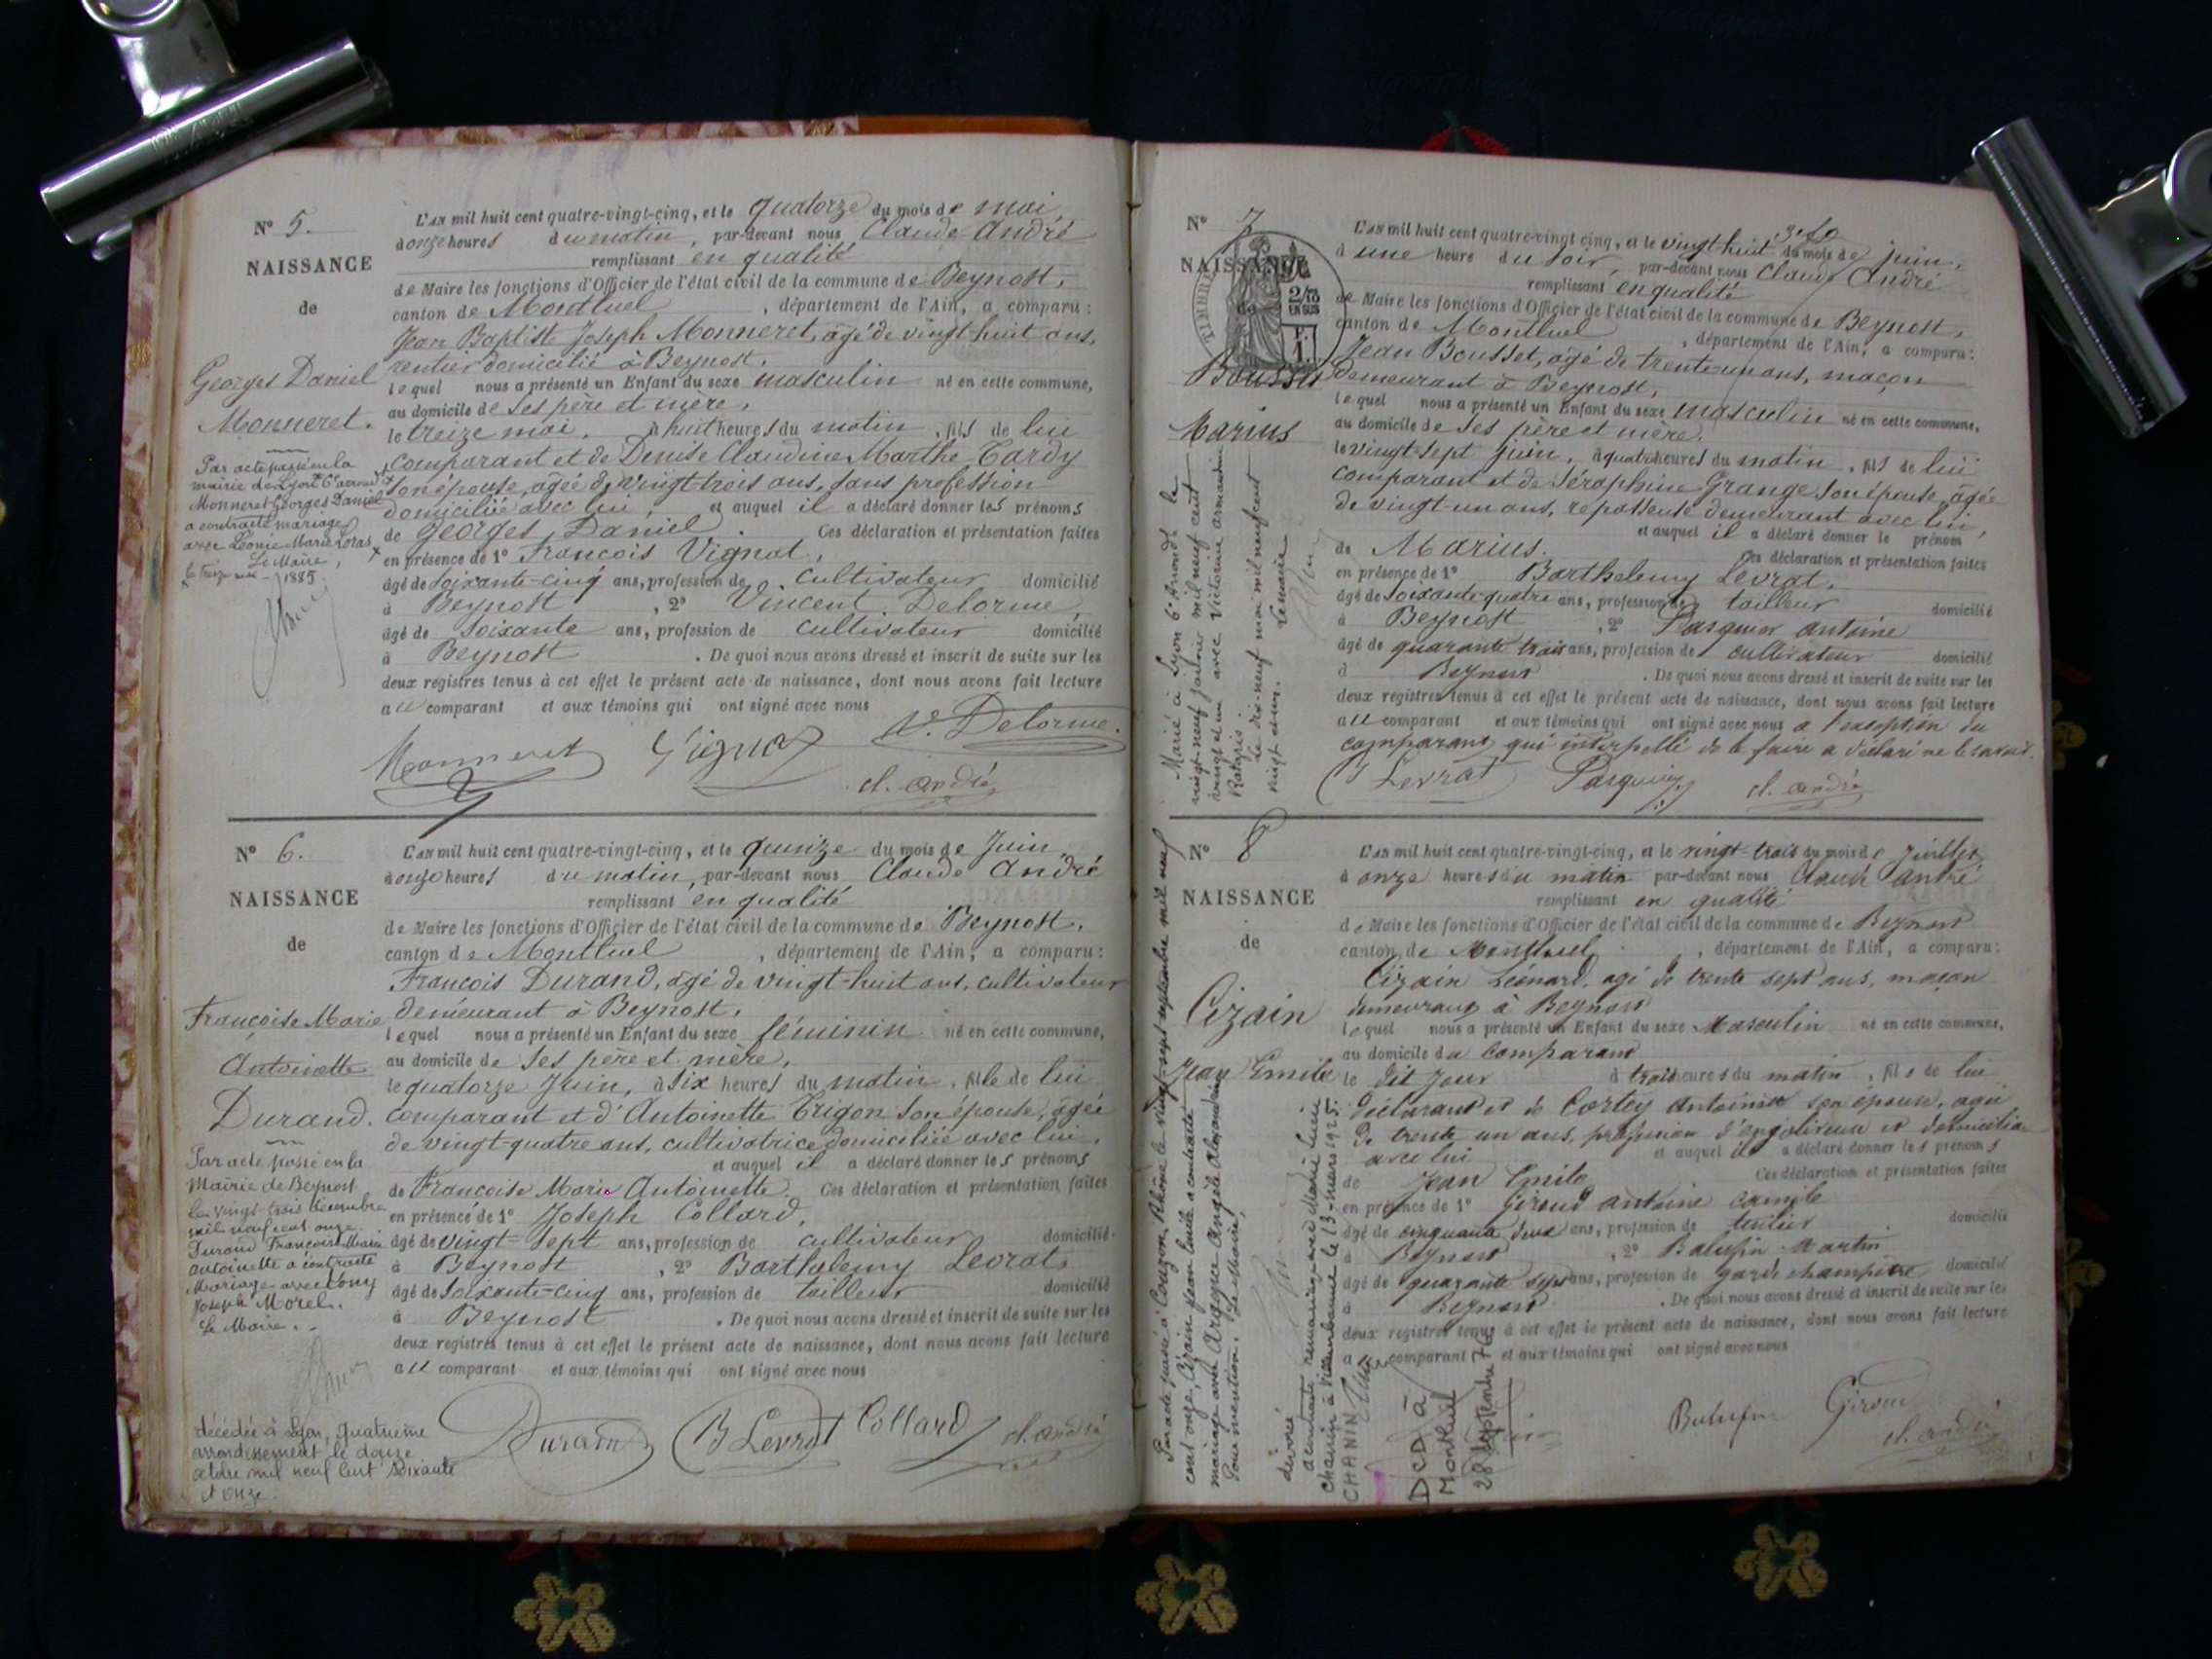 N° 5.
NAISSANCE
de
Georges Daniel
Monneret.
Par acte passé en la
mairie de Lyon 6e arrond.
Monneret Georges Daniel
a contracté mariage
avec Léonie Marie Loras
Le Maire,
1885
L'AN mil huit cent quatre-vingt-cinq, et le quatorze du mois de mai,
à onze heures du matin, par-devant nous Claude André
remplissant en qualité
de Maire les fonctions d'Officier de l'état civil de la commune de Beynost,
canton de Montluel, département de l'Ain, a comparu:
Jean Baptiste Joseph Monneret, âgé de vingt-huit ans,
rentier domicilié à Beynost,
lequel nous a présenté un Enfant du sexe masculin né en cette commune,
au domicile de ses père et mère,
le treize mai, à huit heures du matin, fils de lui
comparant et de Denise Claudine Marthe Tardy
son épouse, agée de vingt-trois ans, sans profession
domiciliée avec lui, et auquel il a déclaré donner les prénoms
de Georges Daniel. Ces déclaration et présentation faites
en présence de 1° François Vignat,
âgé de soixante-cinq ans, profession de cultivateur domicilié
à Beynost, 2° Vincent Delorme,
âgé de soixante ans, profession de cultivateur domicilié
à Beynost. De quoi nous avons dressé et inscrit de suite sur les
deux registres tenus à cet effet le présent acte de naissance, dont nous avons fait lecture
au comparant et aux témoins qui ont signé avec nous
Monneret Vignat V. Delorme.
cl. andré
N° 6.
NAISSANCE
de
Françoise Marie
Antoinette
Durand.
Par acte passé en la
Mairie de Beynost
le vingt trois décembre
mil neuf cent onze.
Durand Françoise Marie
antoinette a contracté
Mariage avec Cony
Joseph Morel.
Le Maire.
décédée à Lyon, quatrième
arrondissement le douze
octobre mil neuf cent soixante
et onze.
L'AN mil huit cent quatre-vingt-cinq, et le quinze du mois de Juin
à onze heures du matin, par-devant nous Claude André
remplissant en qualité
de Maire les fonctions d'Officier de l'état civil de la commune de Beynost,
canton de Montluel, département de l'Ain, a comparu:
François Durand, agé de vingt-huit ans, cultivateur
demeurant à Beynost,
lequel nous a présenté un Enfant du sexe féminin né en cette commune,
au domicile de ses père et mère,
le quatorze Juin, à six heures du matin, fille de lui
comparant et d'Antoinette Trigon son épouse, agée
de vingt-quatre ans, cultivatrice domiciliée avec lui,
et auquel il a déclaré donner les prénoms
de Françoise Marie Antoinette. Ces déclaration et présentation faites
en présence de 1° Joseph Collard,
âgé de vingt-sept ans, profession de cultivateur domicilié
à Beynost, 2° Barthelemy Levrat,
âgé de soixante-cinq ans, profession de tailleur domicilié
à Beynost. De quoi nous avons dressé et inscrit de suite sur les
deux registres tenus à cet effet le présent acte de naissance, dont nous avons fait lecture
au comparant et aux témoins qui ont signé avec nous
Durand B Levrat Collard cl. andré
N° 7
NAISSANCE
de
TIMBRE
2/10
EN SUS
F.
1.
Bousset
Marius
Marié à Lyon 6e Arrondt le
vingt-neuf janvier mil neuf cent
vingt et un avec Victorine armandine
Le dix neuf mai mil neuf cent
vingt et un. Le maire
L'AN mil huit cent quatre-vingt-cinq, et le vingt-huit du mois de juin,
à une heure du soir, par-devant nous Claude André
remplissant en qualité
de Maire les fonctions d'Officier de l'état civil de la commune de Beynost,
canton de Montluel, département de l'Ain, a comparu:
Jean Bousset, âgé de trente-un ans, maçon
demeurant à Beynost,
lequel nous a présenté un Enfant du sexe masculin né en cette commune,
au domicile de ses père et mère,
le vingt-sept juin, à quatre heures du matin, fils de lui
comparant et de Séraphine Grange son épouse, agée
de vingt-un ans, repasseuse demeurant avec lui,
et auquel il a déclaré donner le prénom
de Marius. Ces déclaration et présentation faites
en présence de 1° Barthelemy Levrat,
âgé de soixante-quatre ans, profession de tailleur domicilié
à Beynost, 2° Pasquier antoine
âgé de quarante trois ans, profession de cultivateur domicilié
à Beynost. De quoi nous avons dressé et inscrit de suite sur les
deux registres tenus à cet effet le présent acte de naissance, dont nous avons fait lecture
au comparant et aux témoins qui ont signé avec nous à l'exception du
comparant qui interpellé de le faire a déclaré ne le savoir.
B Levrat Pasquier cl. andré
N° 8
NAISSANCE
de
Cizain
Jean Emile
Par acte passé à Couzon, Rhône le vingt-sept septembre mil neuf
cent onze, Cizain Jean Emile a contracté
mariage avec Angèle Alexandrine
Pour mention. Le Maire,
divorcé
a contracté remariage avec Marie Lucie
Chanin à Villeurbanne le 13 mars 1925.
CHANIN
DCD à
Montluel
28 septembre
L'AN mil huit cent quatre-vingt-cinq, et le vingt-trois du mois de Juillet,
à onze heures du matin par-devant nous Claude André
remplissant en qualité
de Maire les fonctions d'Officier de l'état civil de la commune de Beynost
canton de Montluel, département de l'Ain, a comparu:
Cizain Léonard, agé de trente sept ans, maçon
demeurant à Beynost
lequel nous a présenté un Enfant du sexe Masculin né en cette commune,
au domicile du comparant
le dit jour à trois heures du matin, fils de lui
déclarant et de Cortey Antoinette son épouse, agée
de trente un ans, profession et domiciliée
avec lui et auquel il a déclaré donner les prénoms
de Jean Emile Ces déclaration et présentation faites
en présence de 1° Giroud antoine camile
âgé de cinquante deux ans, profession de tuilier domicilié
à Beynost, 2° Balufin Martin
âgé de quarante sept ans, profession de garde champêtre domicilié
à Beynost. De quoi nous avons dressé et inscrit de suite sur les
deux registres tenus à cet effet le présent acte de naissance, dont nous avons fait lecture
au comparant et aux témoins qui ont signé avec nous
Balufin Giroud
cl. andré